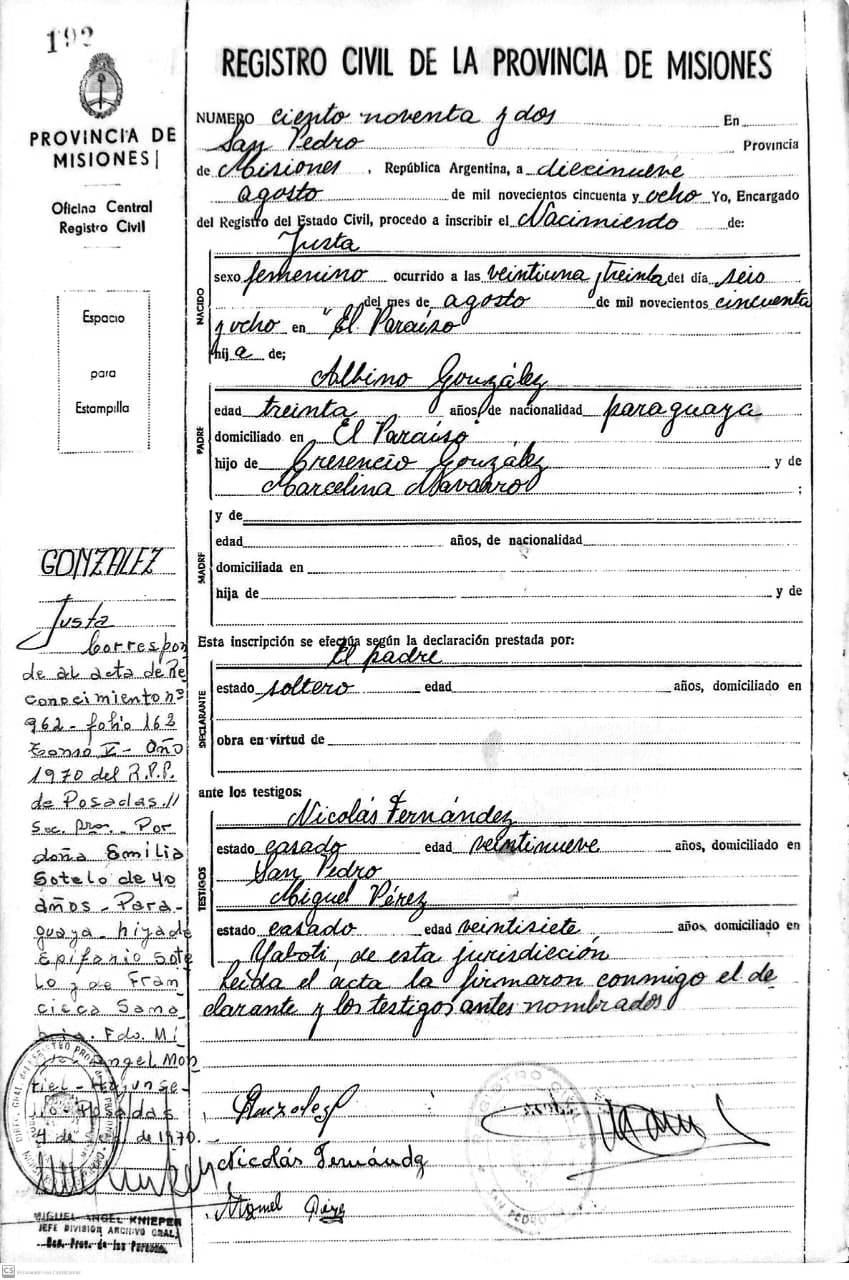 192
PROVINCIA DE
MISIONES
Oficina Central
Registro Civil
Espacio
para
Estampilla
GONZALEZ
Justa
Correspon
de al acta de Re
conocimiento nº
962 - folio 162
Tomo II - Año
1970 del R.P.P.
de Posadas //
Sec. Por
doña Emilia
Sotelo de 40
años - Para-
guaya - hija de
Epifanio Sote
lo y de Fran
cisca Sana
bria. Fdo. Mi
Angel Mon
tiel -
Posadas
4 de de 1970. -
MIGUEL ANGEL KNIEPER
JEFE DIVISION ARCHIVO GRAL.
REGISTRO CIVIL DE LA PROVINCIA DE MISIONES
NUMERO ciento noventa y dos En
San Pedro Provincia
de Misiones, República Argentina, a diecinueve
agosto de mil novecientos cincuenta y ocho Yo, Encargado
del Registro del Estado Civil, procedo a inscribir el Nacimiendo de:
Justa
NACIDO
sexo femenino ocurrido a las veintiuna y treinta del día seis
del mes de agosto de mil novecientos cincuenta
y ocho en "El Paraíso
hija de;
Albino González
PADRE
edad treinta años, de nacionalidad paraguaya
domiciliado en "El Paraíso"
hijo de Cresencio González y de
Marcelina Navarro ;
MADRE
y de
edad años, de nacionalidad
domiciliada en
hija de y de
Esta inscripción se efectúa según la declaración prestada por:
El padre
DECLARANTE
estado soltero edad años, domiciliado en
obra en virtud de
ante los testigos:
Nicolás Fernández
TESTIGOS
estado casado edad veintinueve años, domiciliado en
San Pedro
Miguel Pérez
estado casado edad veintisiete años, domiciliado en
Yaboti, de esta jurisdicción
Leída el acta la firmaron conmigo el de
clarante y los testigos antes nombrados
Nicolás Fernández
Miguel Pérez
REGISTRO CIVIL
SAN PEDRO
CS